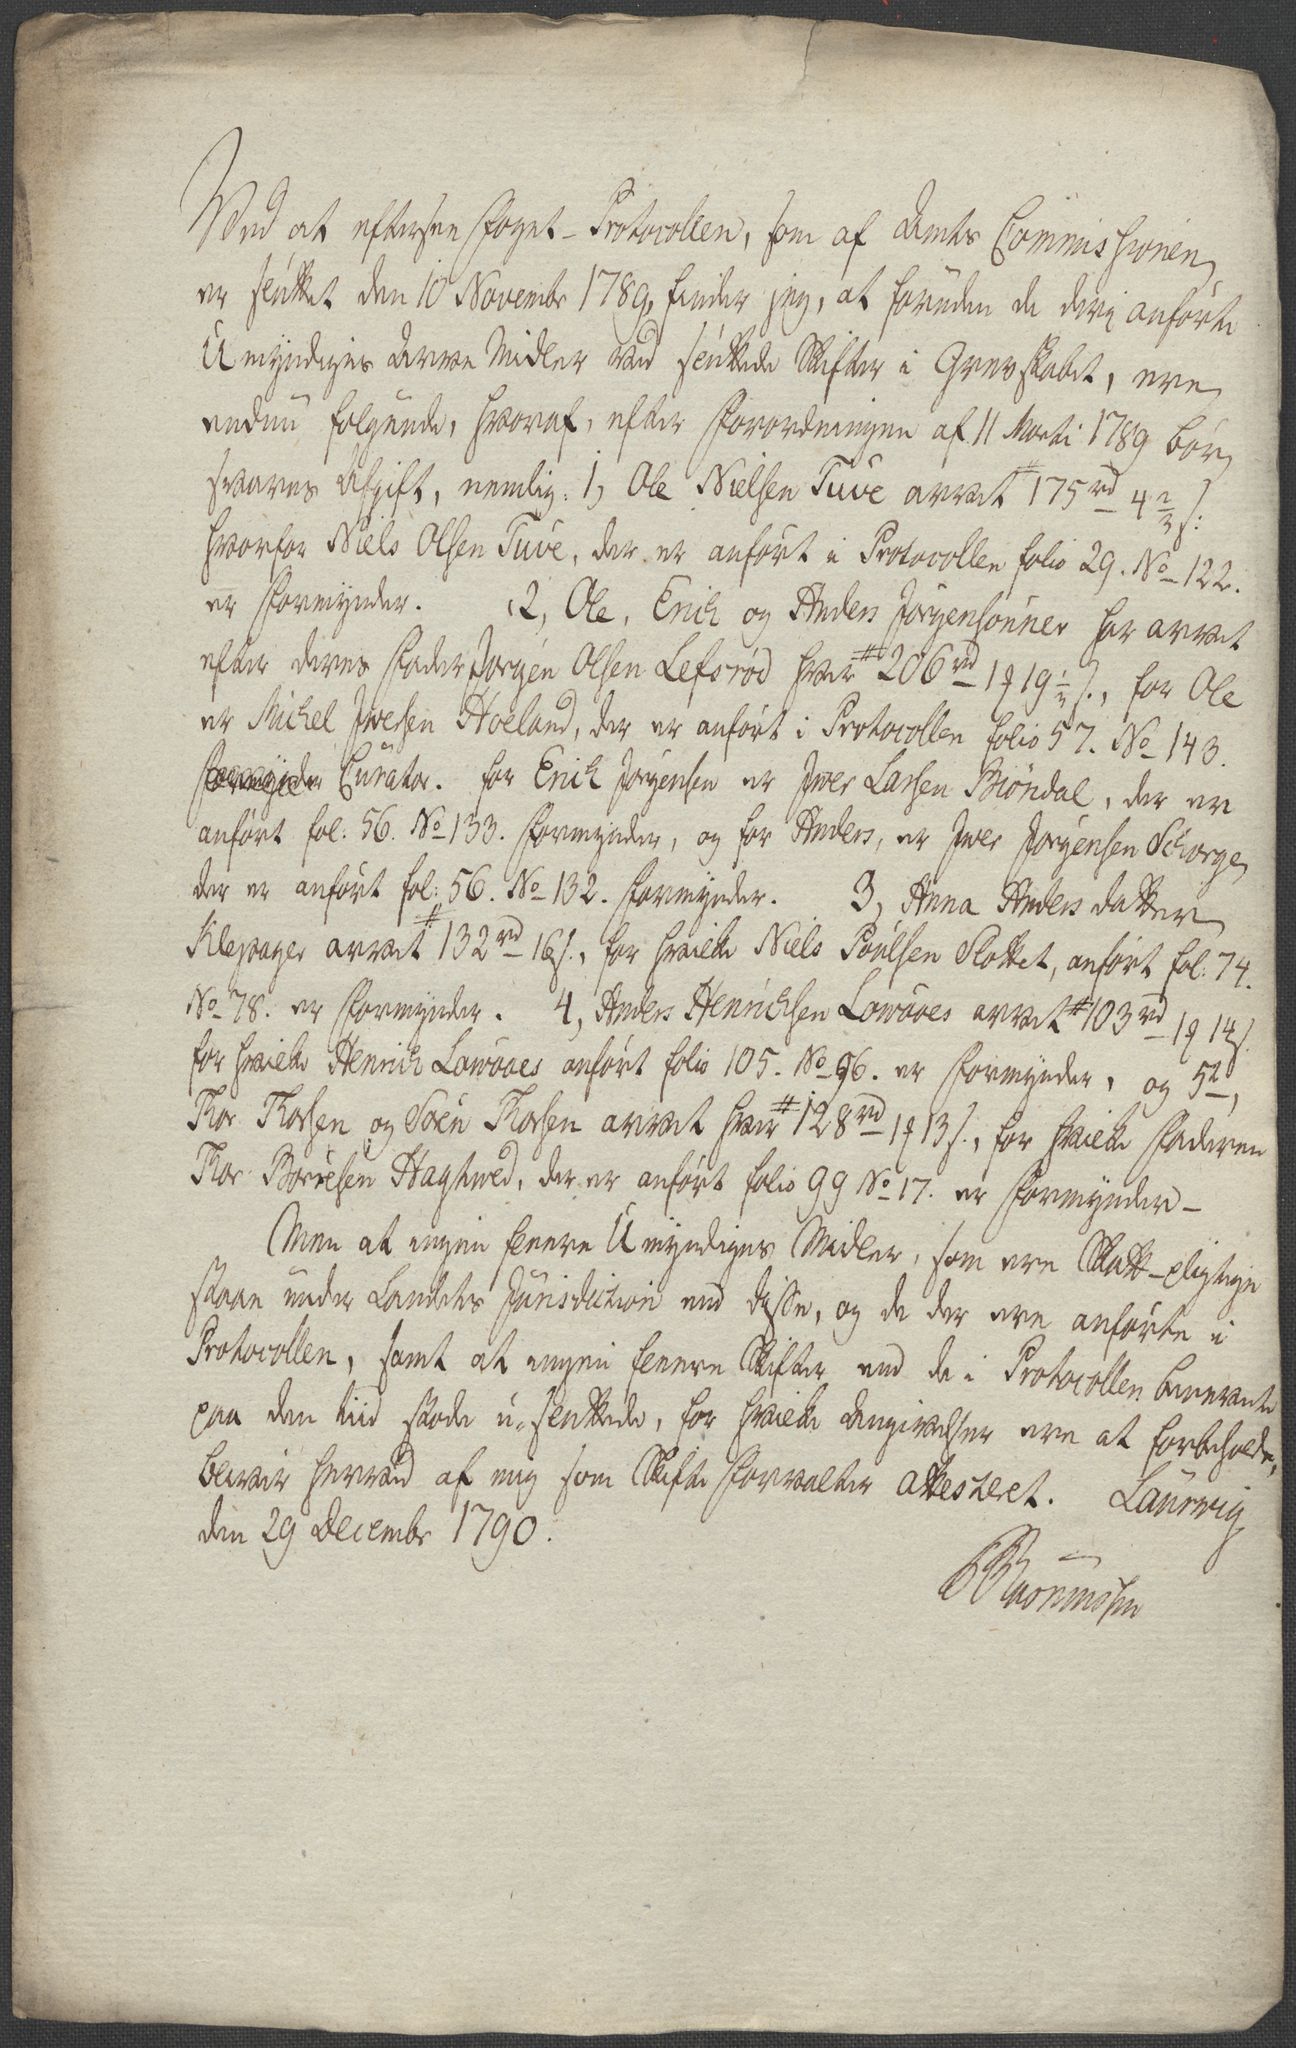 Ved at eftersee Foget-Protocollen, som af Amts Commissionen
er sluttet den 10 Novembr 1789, finder jeg, at foruden de deri anførte
Umyndiges Arve Midler ved sluttede Skifter i Grevskabet, ere
endnu følgende, hvoraf, efter Forordningen af 11 Marti 1789 bør
svares Afgift, nemlig: 1, Ole Nielsen Tuve arvet # 175 rd 4 2/3 s:
hvorfor Niels Olsen Tuve, der er anført i Protocollen folio 29. No 122.
er Formynder. 2, Ole, Erich og Anders Jørgensønner har arvet
efter deres Fader Jørgen Olsen Lefsrød hver # 206 rd 1 ƒ 19 1/2 s., for Ole
er Michel Iversen Hoeland, der er anført i Protocollen folio 57. No 143.
Formynder Curator. for Erich Jørgensen er Iver Larsen Biøndal, der er
anført fol: 56. No 133. Formynder, og for Anders, er Iver Jørgensen Schorge
der er anført fol: 56. No 132. Formynder. 3, Anna Anders datter
Klepager arvet # 132 rd 16 s., for hvilke Niels Poulsen Slottet, anført fol: 74.
No 78. er Formynder. 4, Anders Henrichsen Lowaaes arvet # 103 rd 1 ƒ 14 s.
for hvilke Henrich Lowaaes anført folio 105. No 96. er Formynder, og 5te,
Thor Thorsen og Søren Thorsen arvet hver # 128 rd 1 ƒ 13 s., for hvilke Faderen
Thor Børresen Haghued, der er anført folio 99 No 17. er Formynder –
Men at ingen fleere Umyndiges Midler, som ere Skatt-pligtige
staae under Landets Jurisdiction end disse, og de der ere anførte i
Protocollen, samt at ingen fleere Skifter end de i Protocollen benevnte
paa den tiid stode u-sluttede, for hvilke Angivelser ere at forbeholde,
bliver herved af mig som Skifte Forvalter attesteret. Laurvig
den 29 Decembr 1790.
Rasmussen